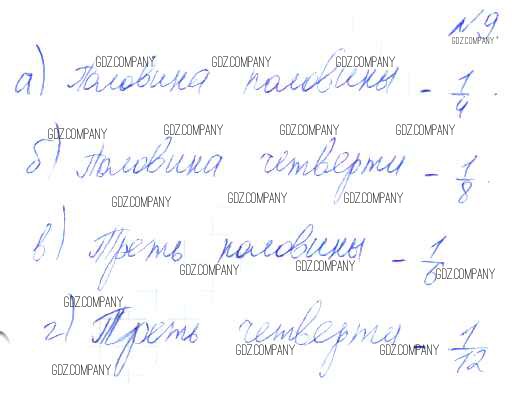 №9.
GDZ.COMPANY
GDZ.COMPANY GDZ.COMPANY GDZ.COMPANY
а) Половина половины - 1/4.
GDZ.COMPANY GDZ.COMPANY GDZ.COMPANY GDZ.COMPANY
б) Половина четверти - 1/8.
GDZ.COMPANY GDZ.COMPANY GDZ.COMPANY
в) Треть половины - 1/6
GDZ.COMPANY GDZ.COMPANY GDZ.COMPANY
GDZ.COMPANY
г) Треть четверти - 1/12
GDZ.COMPANY GDZ.COMPANY
GDZ.COMPANY